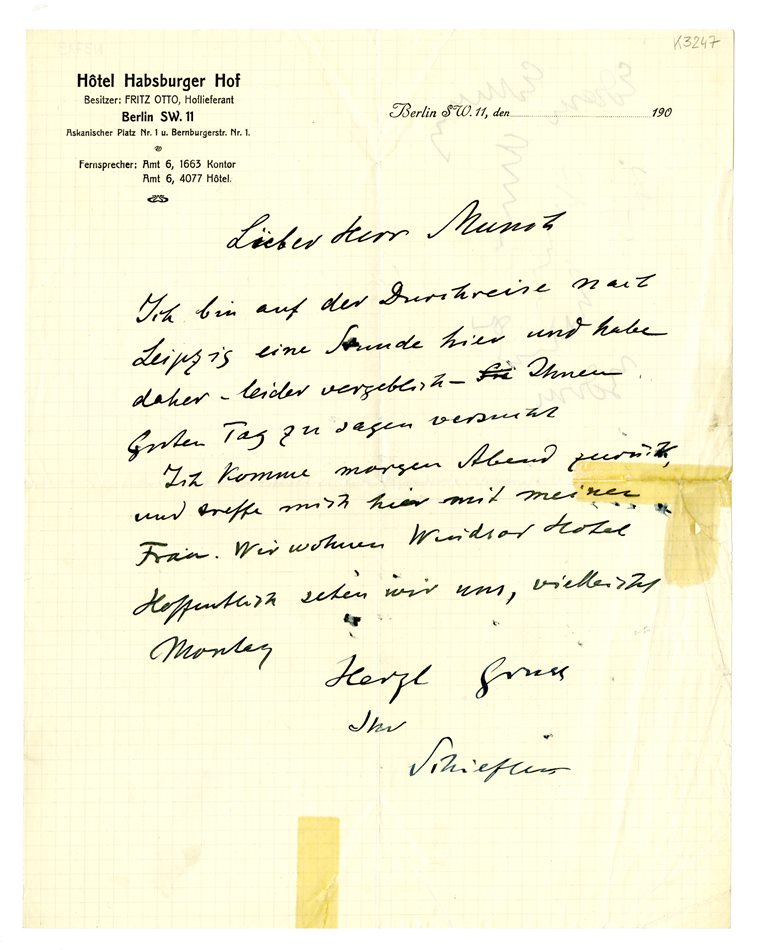 K3247
Hôtel Habsburger Hof
Besitzer: FRITZ OTTO, Hoflieferant
Berlin SW. 11
Askanischer Platz Nr. 1 u. Bernburgerstr. Nr. 1.
Fernsprecher: Amt 6, 1663 Kontor
Amt 6, 4077 Hôtel.
Berlin SW. 11, den 190
Lieber Herr Munch
Ich bin auf der Durchreise nach
Leipzig eine Stunde hier und habe
daher – leider vergeblich – Sie Ihnen
Guten Tag zu sagen versucht
Ich komme morgen Abend zurück,
und treffe mich hier mit meiner
Frau. Wir wohnen Windsor Hotel
Hoffentlich sehen wir uns, vielleicht
Montag
Herzl Gruss
Ihr
Schiefler